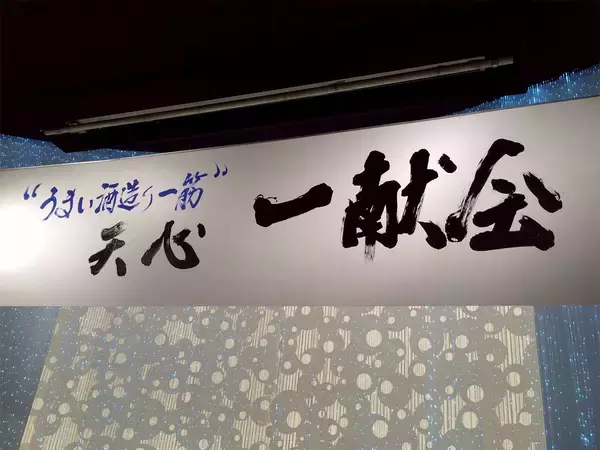 “うまい酒造り一筋”
天心 一献会